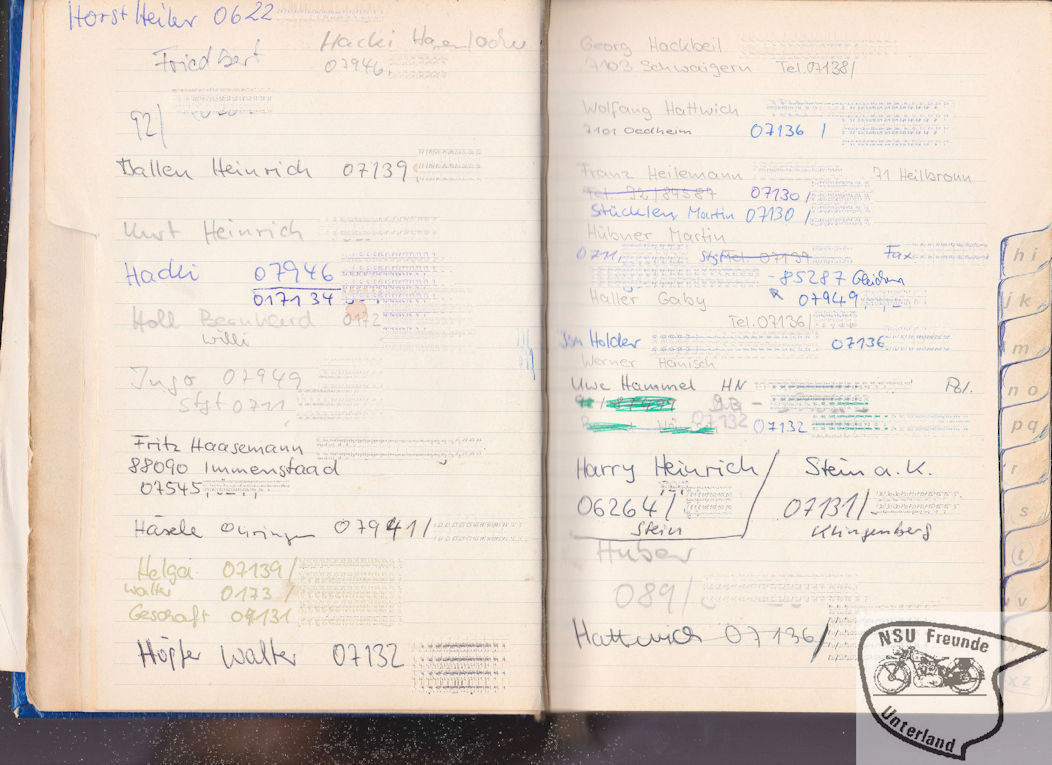 Horst Heiler 0622
Hacki
Friedbert 07946
92/
Heinrich 07139
Kurt Heinrich
Hacki 07946
017134
Holl Bernhard 0172
Willi
Ingo 07949
Stgt 0711
Fritz Haasemann
88090 Immenstaad
07545
Häsele Öhringen 07941/
Helga 07139/
Walter 0173/
Geschäft 07131
Höpfer Walter 07132
Georg Hackbeil
7103 Schwaigern Tel. 07138/
Wolfgang Hattwich
7101 Oedheim 07136 /
Franz Heilemann 71 Heilbronn
07130/
Stücklen Martin 07130/
Hübner Martin
0711, Fax
- 85287
Haller Gaby 07949
Tel. 07136/
Holder 07136
Werner Hänisch
Uwe Hammel HN Pol.
07132 07132
Harry Heinrich / Stein a.K.
06264/ 07131/
Stein Klingenberg
Huber
089/
Hattwich 07136/
h i
j k
m
n o
p q
r
s
t
v
w
x z
NSU Freunde
Unterland